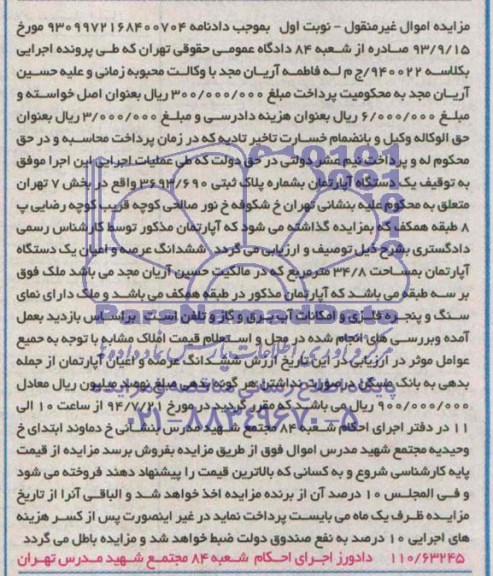 مزایده اموال غیرمنقول - نوبت اول   بموجب دادنامه ۹۳۰۹۹۷۲۱۶۸۴۰۰۷۰۴ مورخ
۹۳/۹/۱۵ صادره از شعبه ۸۴ دادگاه عمومی حقوقی تهران که طی پرونده اجرایی
بکلاسه ۹۴۰۰۲۲/ج م له فاطمه آریان مجد با وکالت محبوبه زمانی و علیه حسین
آریان مجد به محکومیت پرداخت مبلغ ۳۰۰/۰۰۰/۰۰۰ ریال بعنوان اصل خواسته و
مبلغ ۶/۰۰۰/۰۰۰ ریال بعنوان هزینه دادرسی و مبلغ ۳/۰۰۰/۰۰۰ ریال بعنوان
حق الوکاله وکیل و بانضمام خسارت تاخیر تادیه که در زمان پرداخت محاسبه و در حق
محکوم له و پرداخت نیم عشر دولتی در حق دولت که طی عملیات اجرایی این اجرا موفق
به توقیف یک دستگاه آپارتمان بشماره پلاک ثبتی ۳۶۹۳/۶۹۰ واقع در بخش ۷ تهران
متعلق به محکوم علیه بنشانی تهران خ شکوفه خ نور صالحی کوچه قریب کوچه رضایی پ
۸ طبقه همکف که بمزایده گذاشته می شود که آپارتمان مذکور توسط کارشناس رسمی
دادگستری بشرح ذیل توصیف و ارزیابی می گردد. ششدانگ عرصه و اعیان یک دستگاه
آپارتمان بمساحت ۳۴/۸ مترمربع که در مالکیت حسین آریان مجد می باشد ملک فوق
بر سه طبقه می باشد که آپارتمان مذکور در طبقه همکف می باشد و ملک دارای نمای
سنگ و پنجره فلزی و امکانات آب برق و گاز و تلفن است. براساس بازدید بعمل
آمده وبررسی های انجام شده در محل و استعلام قیمت املاک مشابه با توجه به جمیع
عوامل موثر در ارزیابی در این تاریخ ارزش ششدانگ عرصه و اعیان آپارتمان از جمله
بدهی به بانک مسکن درصورت نداشتن هر گونه بدهی مبلغ نهصد میلیون ریال معادل
۹۰۰/۰۰۰/۰۰۰ ریال می باشد که مقرر گردید در مورخ ۹۴/۷/۲۱ از ساعت ۱۰ الی
۱۱ در دفتر اجرای احکام شعبه ۸۴ مجتمع شهید مدرس بنشانی خ دماوند ابتدای خ
وحیدیه مجتمع شهید مدرس اموال فوق از طریق مزایده بفروش برسد مزایده از قیمت
پایه کارشناسی شروع و به کسانی که بالاترین قیمت را پیشنهاد دهند فروخته می شود
و فی المجلس ۱۰ درصد آن از برنده مزایده اخذ خواهد شد و الباقی آنرا از تاریخ
مزایده ظرف یک ماه می بایست پرداخت نماید در غیر اینصورت پس از کسر هزینه
های اجرایی ۱۰ درصد به نفع صندوق دولت ضبط خواهد شد و مزایده باطل می گردد
۱۱۰/۶۳۲۴۵   دادورز اجرای احکام شعبه ۸۴ مجتمع شهید مدرس تهران